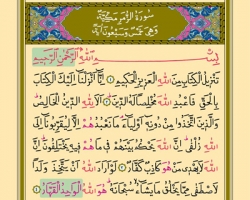 سُورَةُ الزُّمَرِ مَكِّيَّةٌ
وَهِيَ خَمْسٌ وَسَبْعُونَ آيَةً
بِسْمِ اللهِ الرَّحْمٰنِ الرَّحِيمِ
تَنْزِيلُ الْكِتَابِ مِنَ اللهِ الْعَزِيزِ الْحَكِيمِ اِنَّا اَنْزَلْنَا اِلَيْكَ الْكِتَابَ
بِالْحَقِّ فَاعْبُدِ اللهَ مُخْلِصًا لَهُ الدِّينَ اَلَا لِلّٰهِ الدِّينُ الْخَالِصُ
وَالَّذِينَ اتَّخَذُوا مِنْ دُونِهِ اَوْلِيَاءَ مَا نَعْبُدُهُمْ اِلَّا لِيُقَرِّبُونَا اِلَى
اللهِ زُلْفٰى اِنَّ اللهَ يَحْكُمُ بَيْنَهُمْ فِي مَا هُمْ فِيهِ يَخْتَلِفُونَ اِنَّ اللهَ
لَا يَهْدِي مَنْ هُوَ كَاذِبٌ كَفَّارٌ لَوْ اَرَادَ اللهُ اَنْ يَتَّخِذَ وَلَدًا
لَاصْطَفٰى مِمَّا يَخْلُقُ مَا يَشَاءُ سُبْحَانَهُ هُوَ اللهُ الْوَاحِدُ الْقَهَّارُ